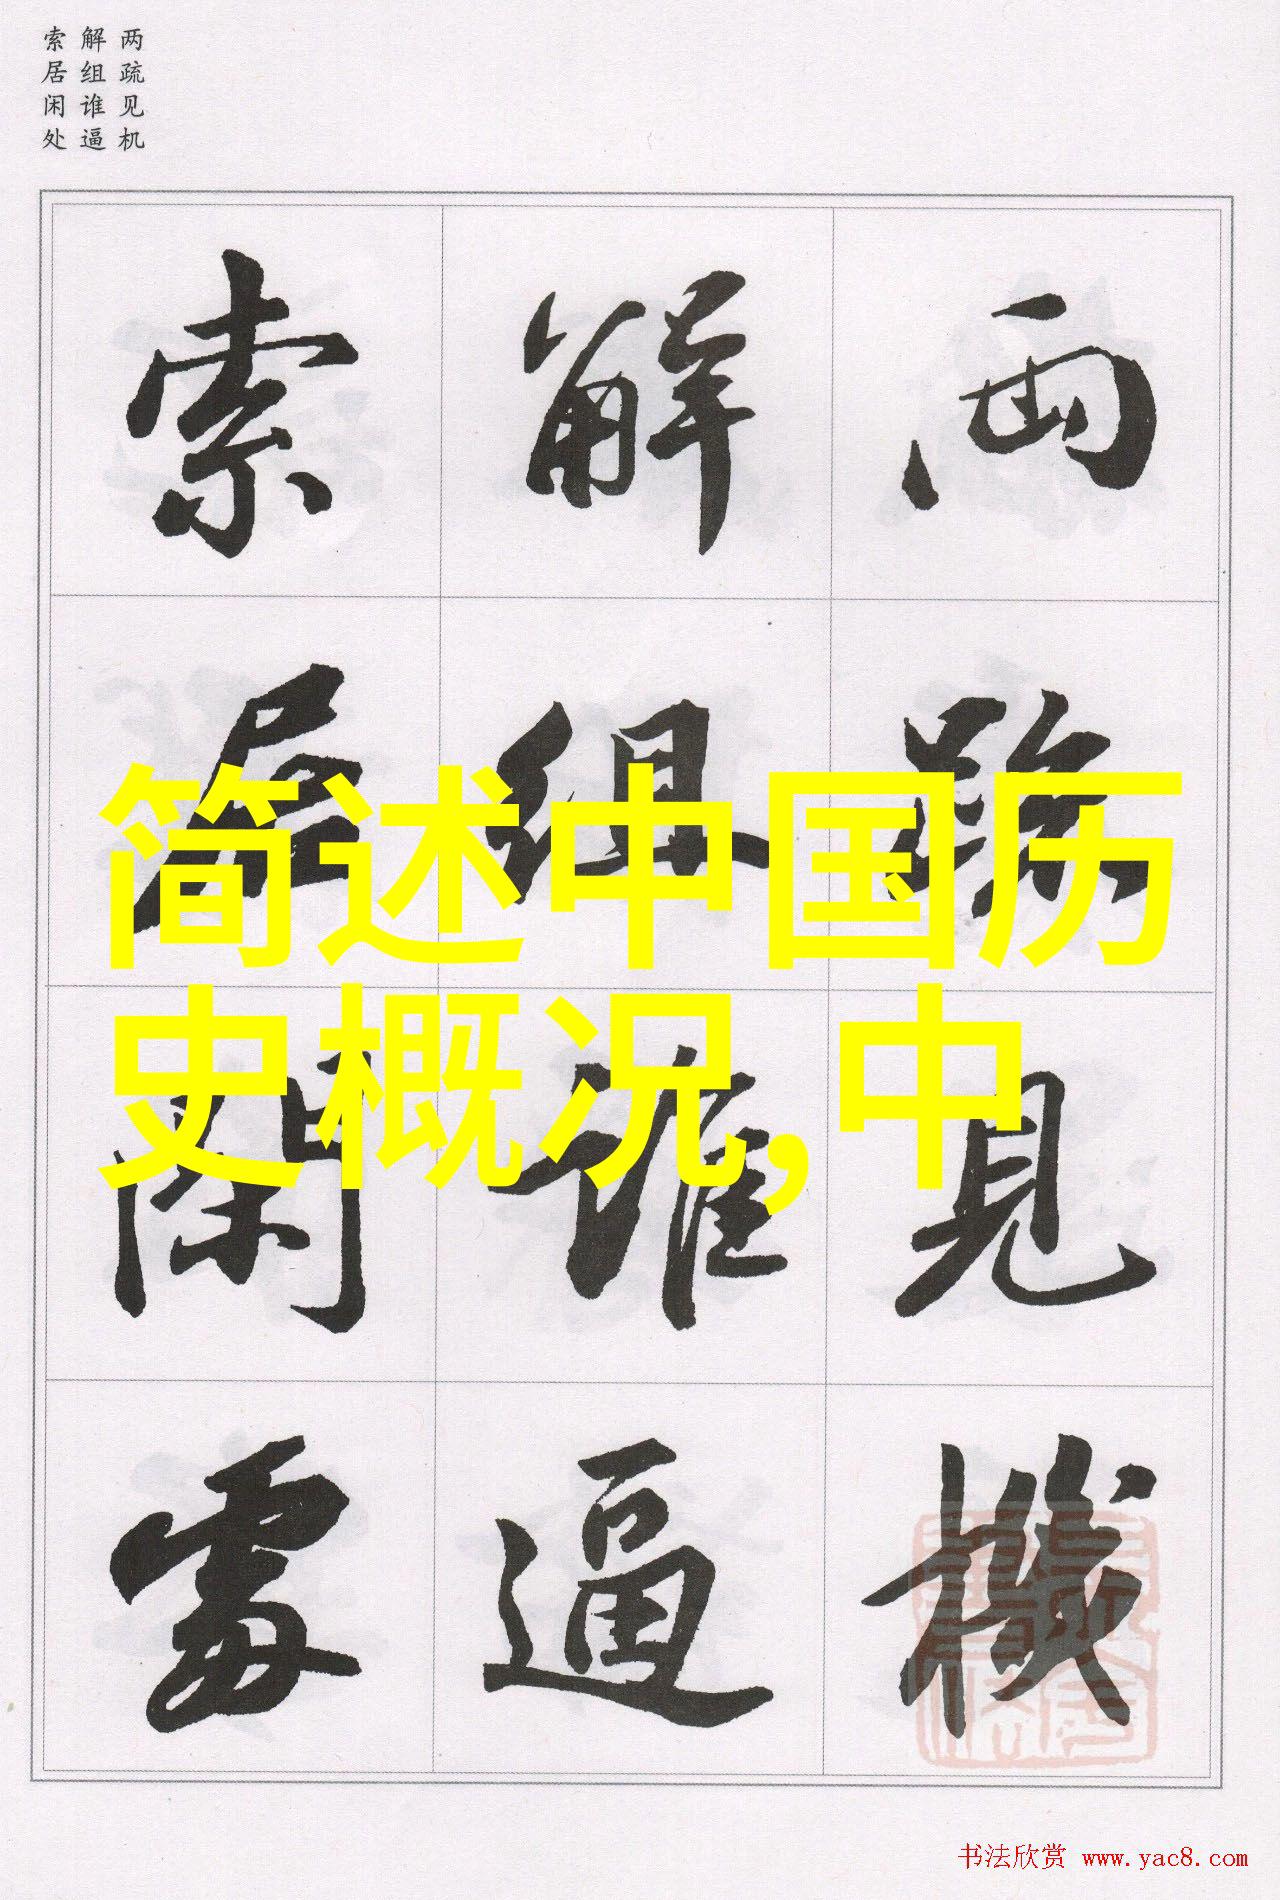 两疏见机
解组谁逼
索居闲处
两疏見機
解组谁逼
索居閑處
简述中国历
史概况,中
书法欣赏 www.yac8.com